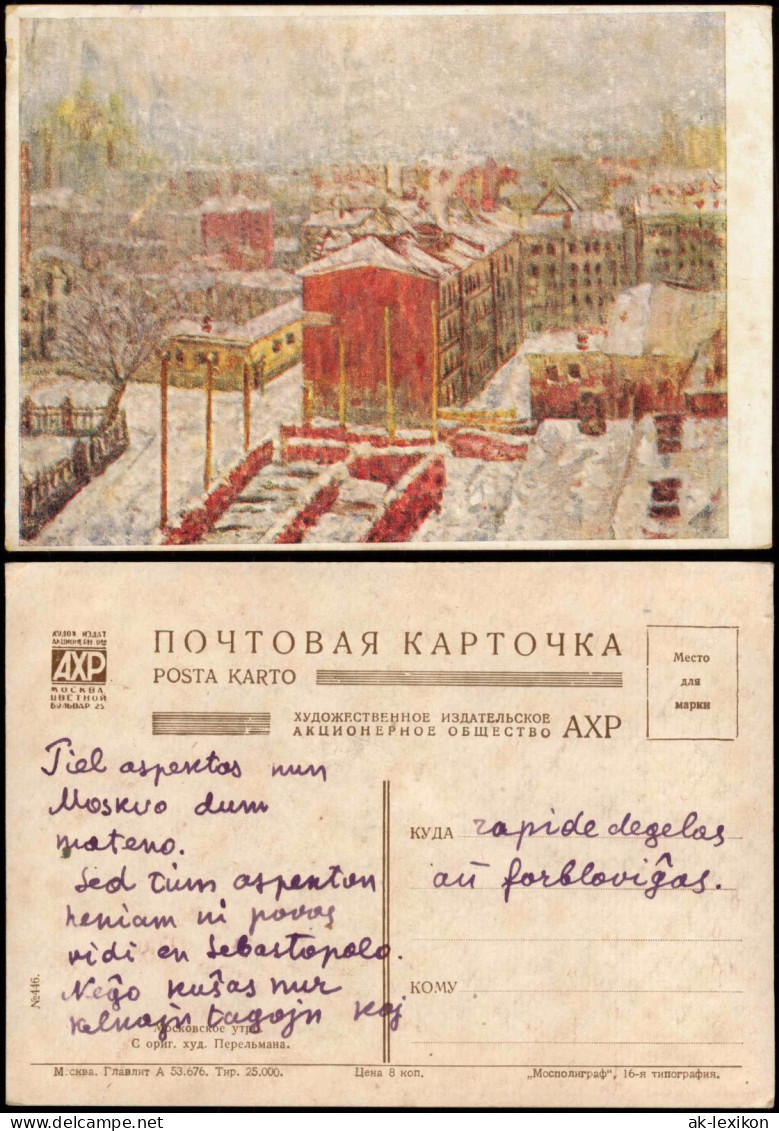 ХУДОЖ ИЗДАТ
АКЦИОНЕРН ОБЩ
АХР
МОСКВА
ЦВЕТНОЙ
БУЛЬВАР 25
ПОЧТОВАЯ КАРТОЧКА
POSTA KARTO
ХУДОЖЕСТВЕННОЕ ИЗДАТЕЛЬСКОЕ
АКЦИОНЕРНОЕ ОБЩЕСТВО АХР
Место
для
марки
Tiel aspektas nun
Moskvo dum
mateno.
Sed tiun aspekton
neniam ni povas
vidi en Sebastopolo.
Neĝo kuŝas nur
kelkajn tagojn kaj
КУДА rapide degelas
aŭ forbloviĝas.
КОМУ
№446.
Московское утро
С ориг. худ. Перельмана.
Москва. Главлит А 53.676. Тир. 25.000.
Цена 8 коп.
„Мосполиграф", 16-я типография.
ak-lexikon